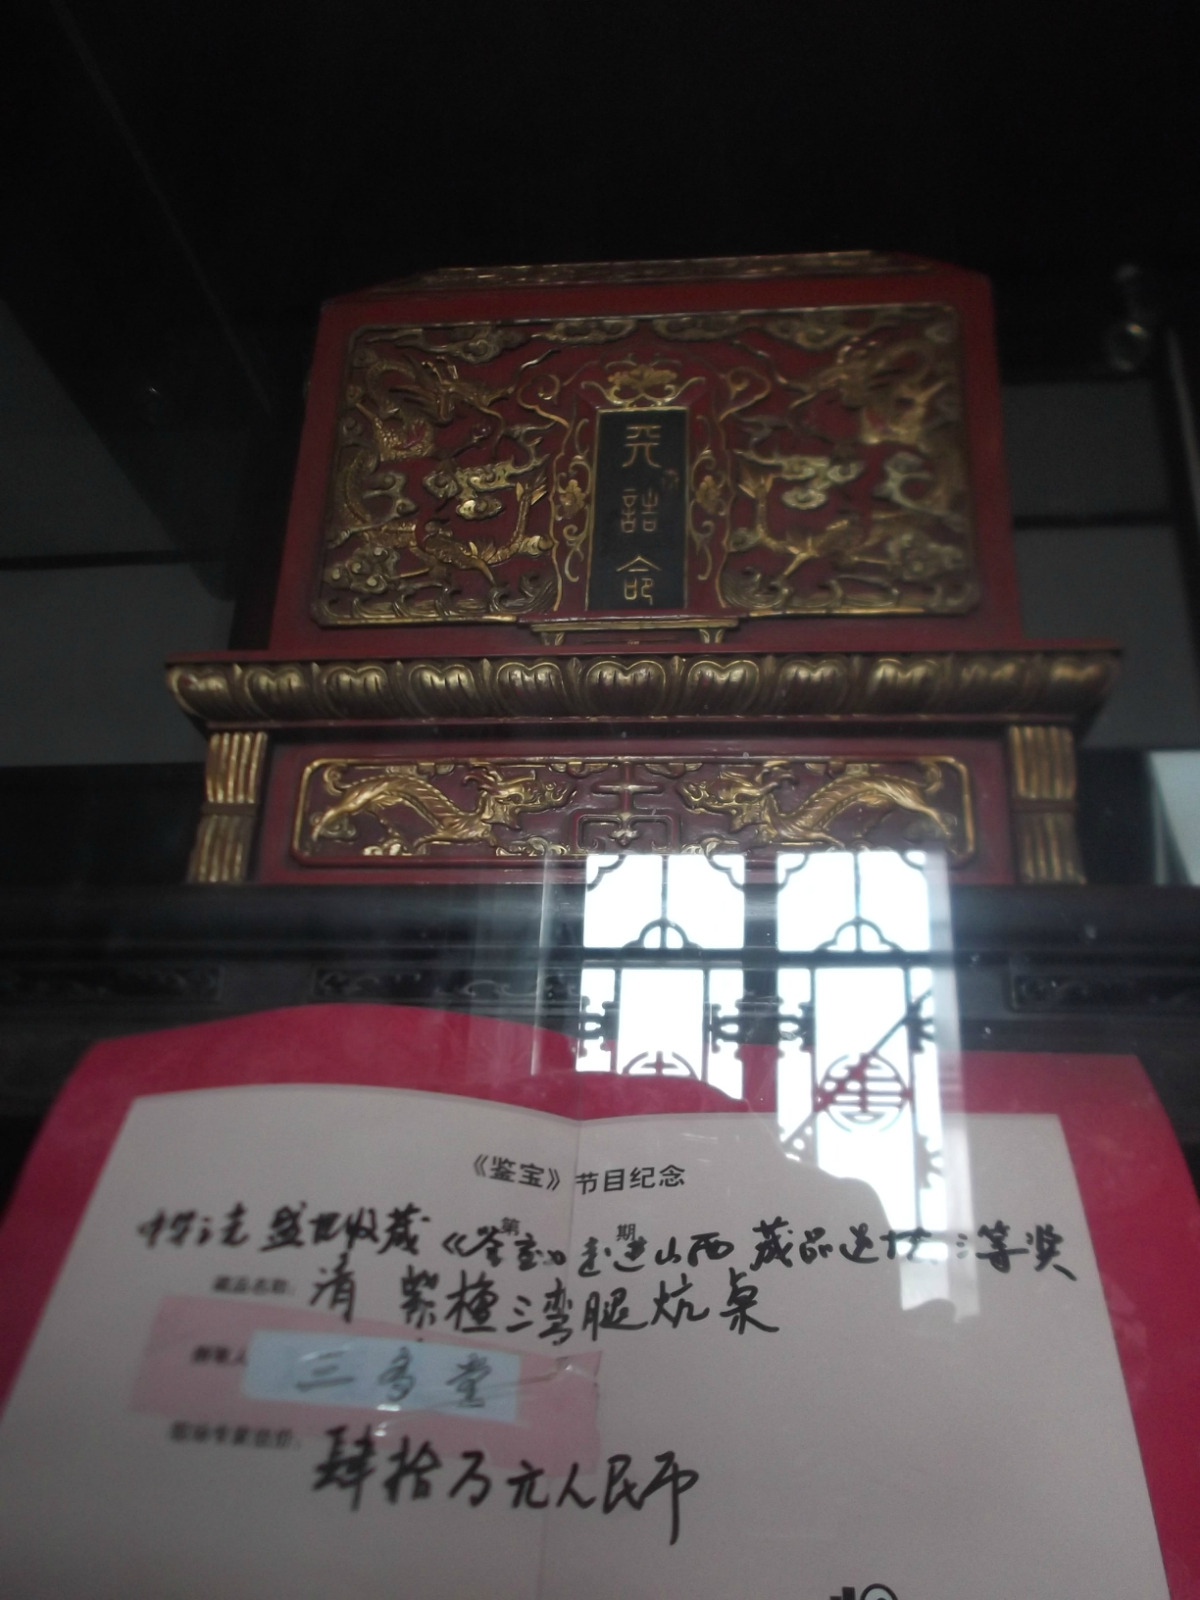 天
誥
命
《鉴宝》节目纪念
盛世收藏《鉴宝》走进山西 藏品选拔 三等奖
第 期
藏品名称: 清 紫檀三湾腿炕桌
持宝人 三多堂
现场专家估价: 肆拾万元人民币